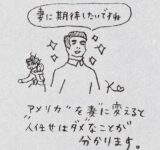 妻に期待したいですね
"アメリカ"を"妻"に変えると
"人任せはダメなことが
分かります。